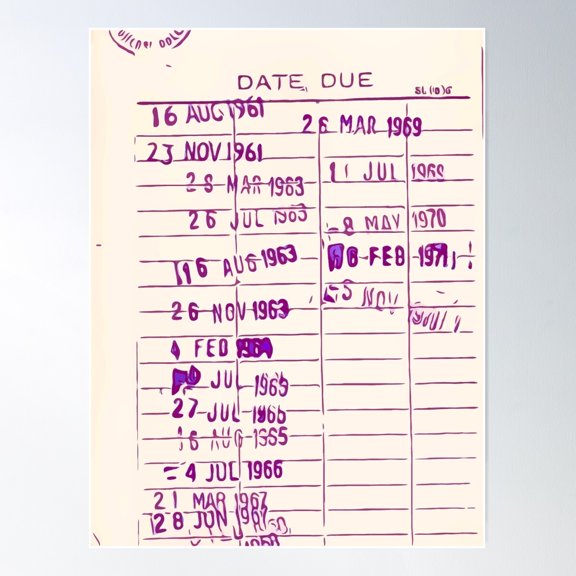 DATE DUE
16 AUG 1961
23 NOV 1961
28 MAR 1963
26 JUL 1963
16 AUG 1963
26 NOV 1963
4 FEB 1964
JUL 1965
27 JUL 1965
16 AUG 1965
4 JUL 1966
21 MAR 1967
28 JUN
26 MAR 1969
11 JUL 1969
8 MAY 1970
6 FEB 1971
NOV